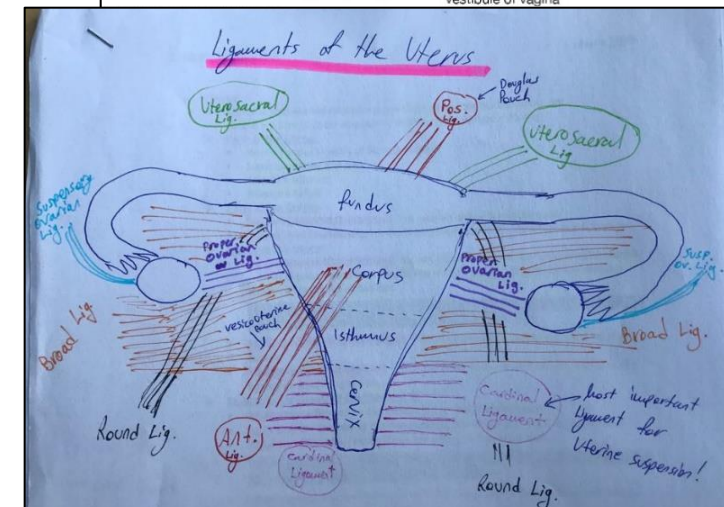 vestibule of vagina
Ligaments of the Uterus
Uterosacral
Lig.
Pos.
Lig.
Douglas
Pouch
Uterosacral
Lig
Suspensory
ovarian
Lig.
fundus
Proper.
Ovarian
Lig.
Corpus
Proper.
Ovarian
Lig.
Susp.
ov. Lig.
vesicouterine
pouch
Isthmus
Broad Lig
Broad Lig.
Cervix
Round Lig.
Ant.
Lig.
Cardinal
Ligament
Cardinal
Ligament
most important
ligament for
Uterine suspension!
Round Lig.